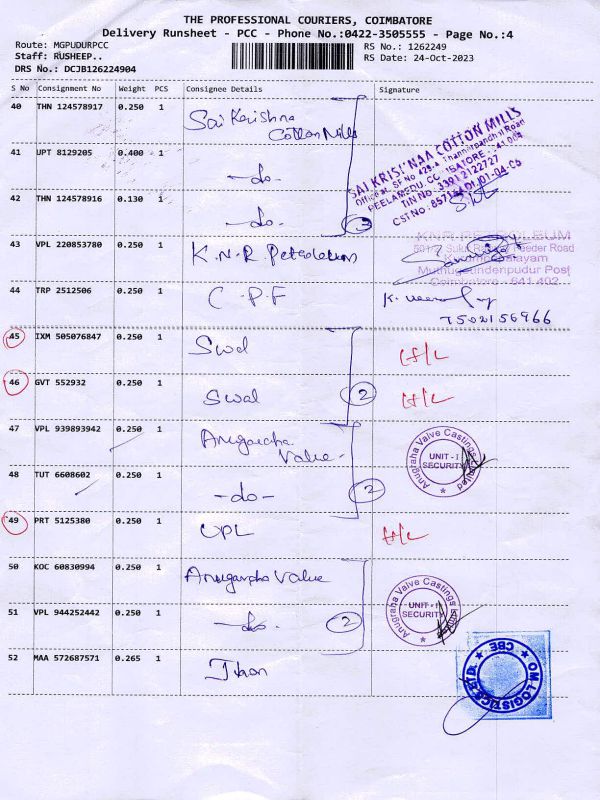 THE PROFESSIONAL COURIERS, COIMBATORE
Delivery Runsheet - PCC - Phone No.:0422-3505555 - Page No.:4
Route: MGPUDURPCC
RS No.: 1262249
Staff: RUSHEEP..
RS Date: 24-Oct-2023
DRS No.: DCJB126224904
S No Consignment No Weight PCS Consignee Details Signature
40 THN 124578917 0.250 1 Sai Krishna
Cotton Mills
SAI KRISHNAA COTTON MILLS
41 UPT 8129205 0.400 1 -do-
42 THN 124578916 0.130 1 -do- 3
43 VPL 220853780 0.250 1 K.N.R Petroleum
Muthugoundenpudur Post
Coimbatore - 641 402
44 TRP 2512506 0.250 1 C.P.F
7502156966
45 IXM 505076847 0.250 1 Swal
46 GVT 552932 0.250 1 Swal 2
47 VPL 939893942 0.250 1
Anugraha Valve Castings Limited
UNIT - I
SECURITY
48 TUT 6608602 0.250 1 -do- 2
49 PRT 5125380 0.250 1 UPL
50 KOC 60830994 0.250 1
Anugraha Valve Castings
UNIT - I
SECURITY
51 VPL 944252442 0.250 1 -do- 2
52 MAA 572687571 0.265 1
OM LOGISTICS LTD.
CBE